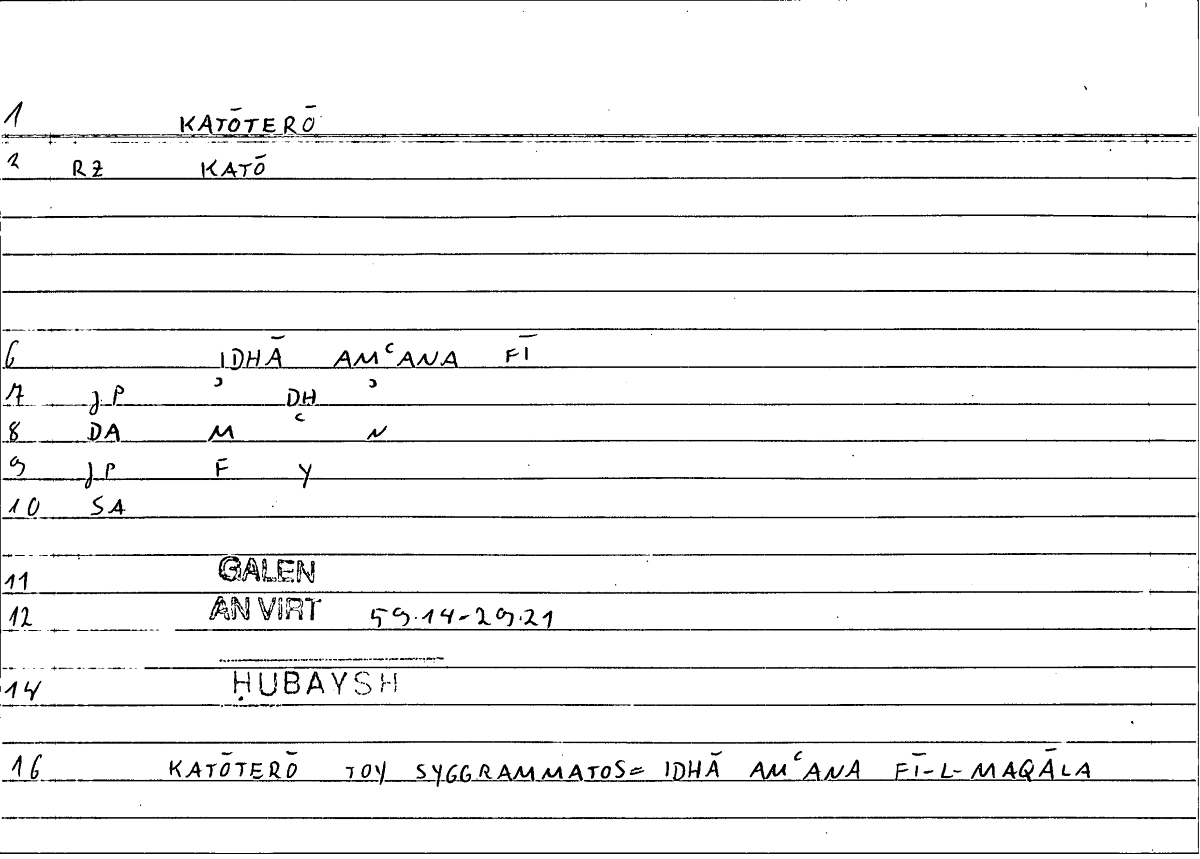 1 KATŌTERŌ
2 RZ KATŌ
6 IDHĀ AMʿANA FĪ
7 JP ʾ DH ʾ
8 DA M ʿ N
9 JP F Y
10 SA
11 GALEN
12 AN VIRT 59.14-29.21
14 ḤUBAYSH
16 KATŌTERŌ TOY SYGGRAMMATOS= IDHĀ AMʿANA FĪ-L-MAQĀLA